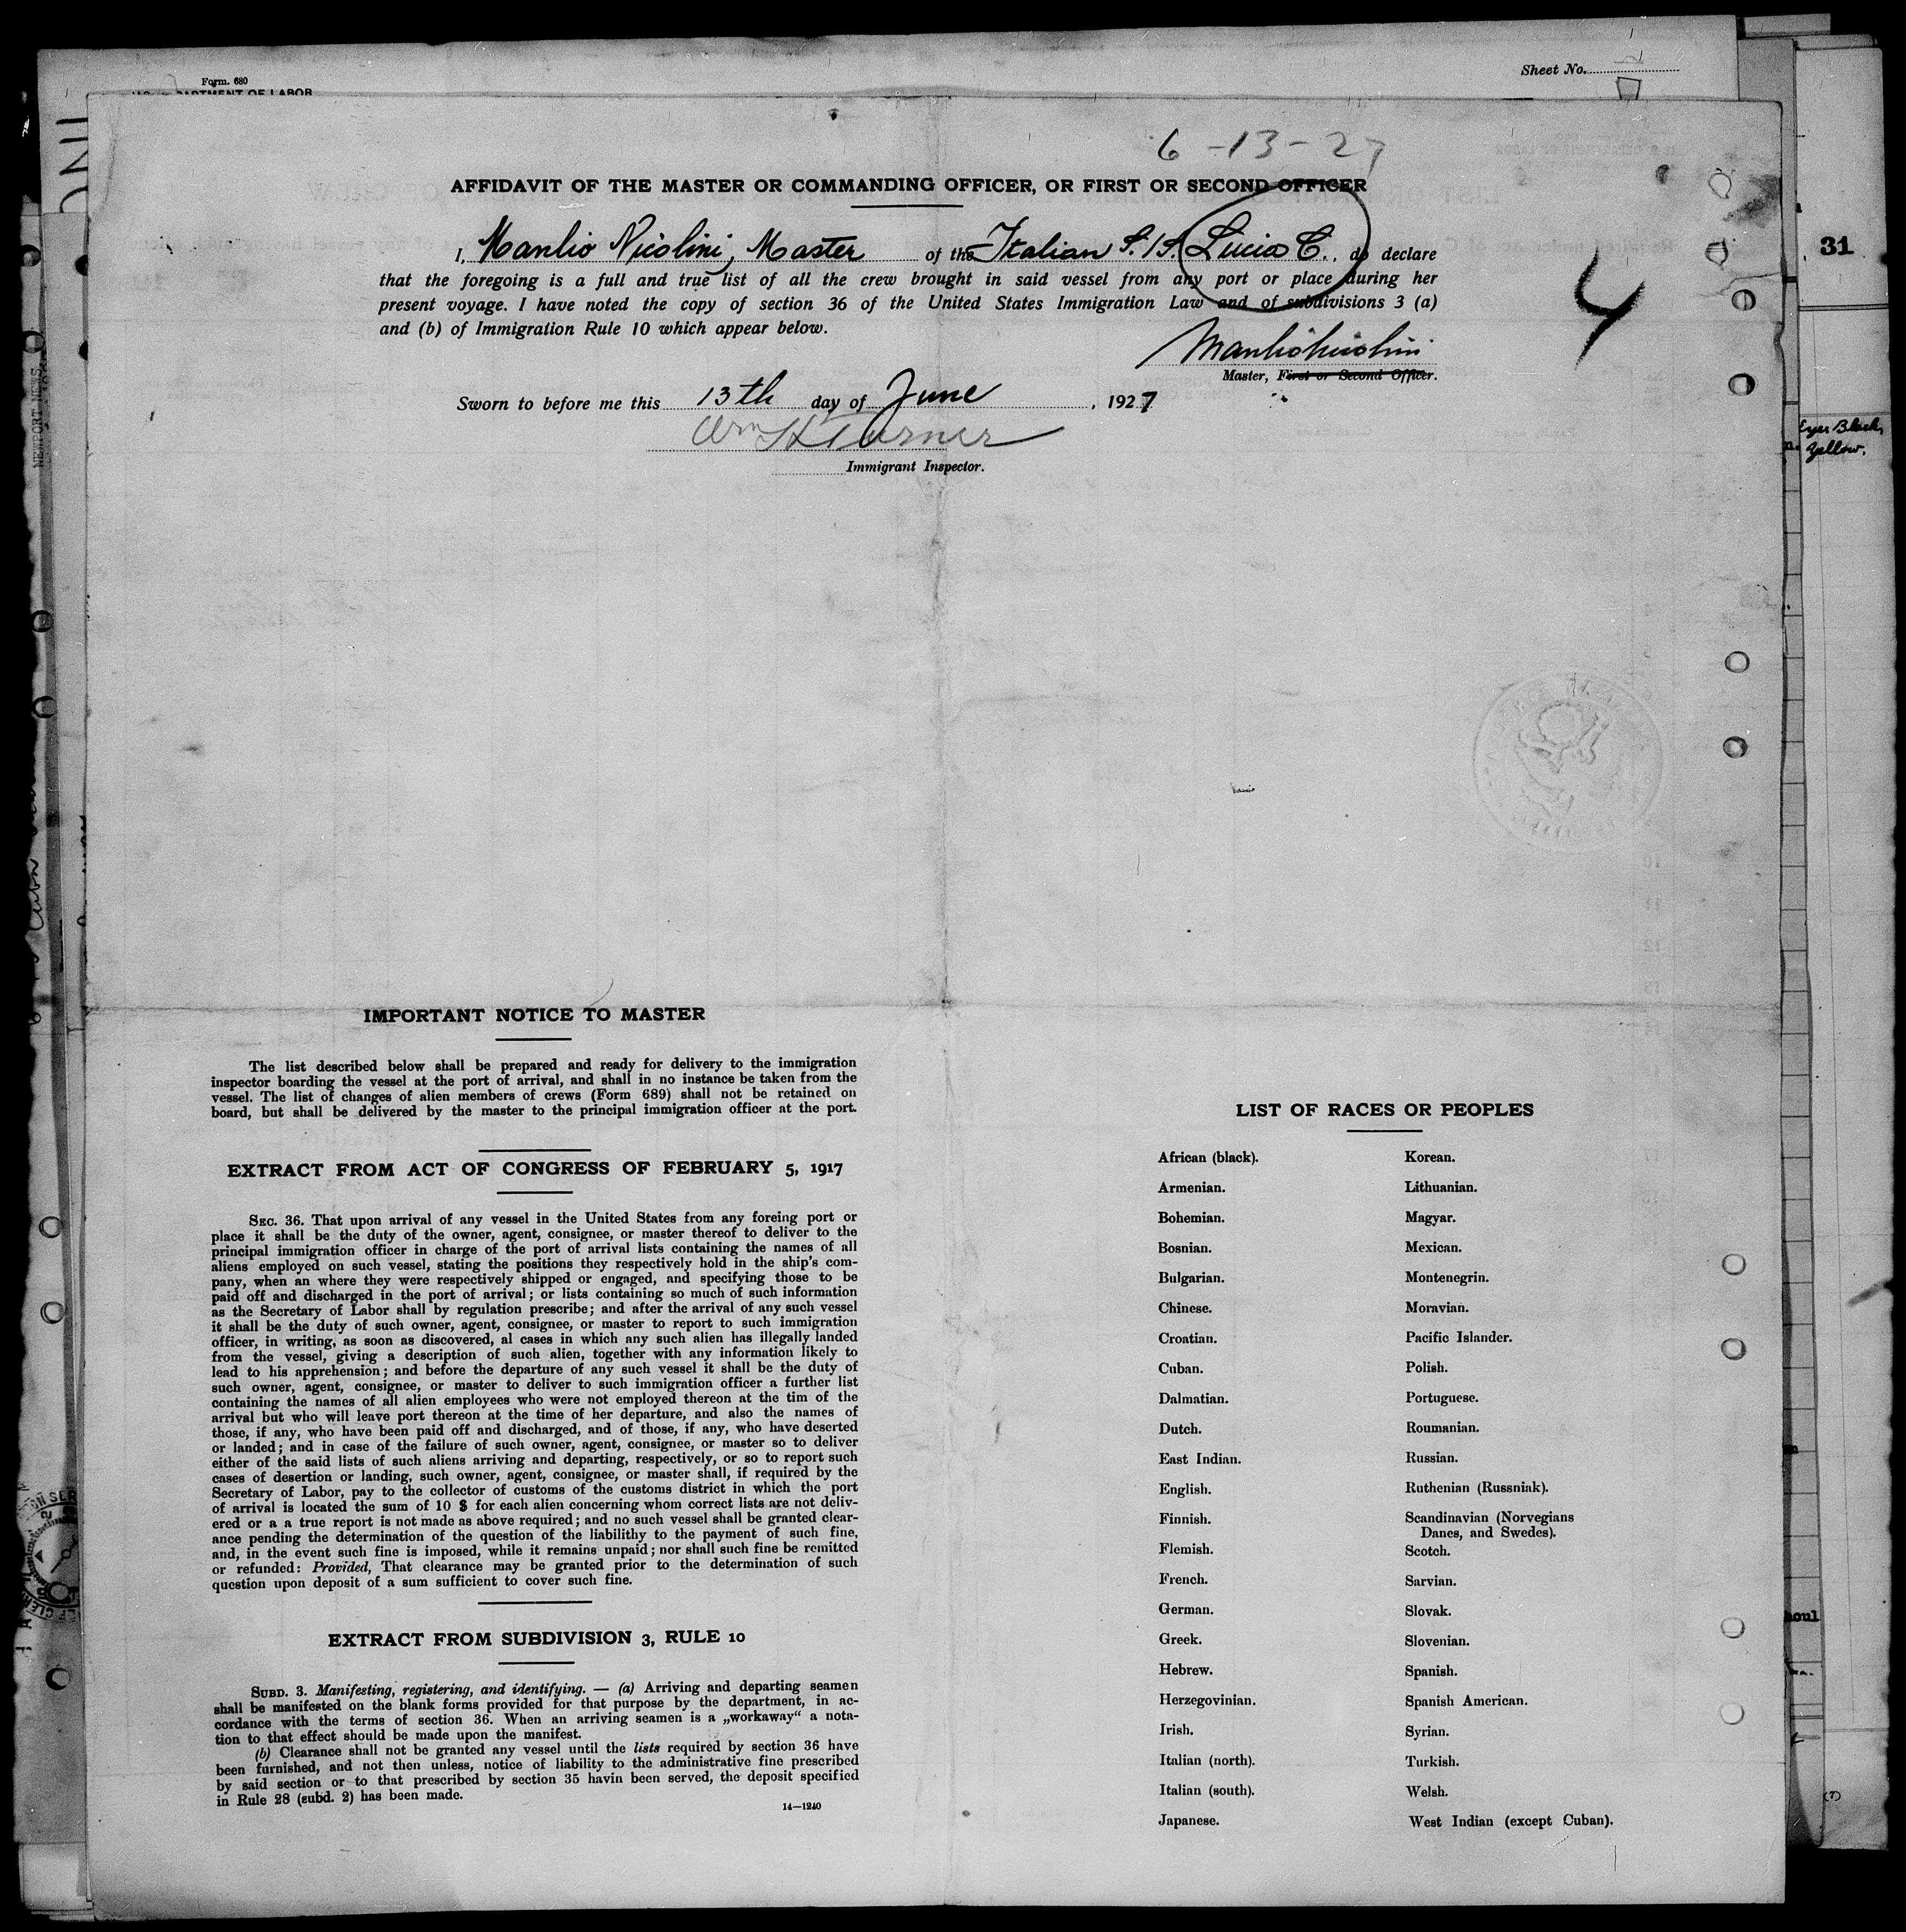 Form. 680
DEPARTMENT OF LABOR
Sheet No.
6-13-27
AFFIDAVIT OF THE MASTER OR COMMANDING OFFICER, OR FIRST OR SECOND OFFICER
I, Manlio Nicolini, Master of the Italian S./S. Lucia C., do declare
that the foregoing is a full and true list of all the crew brought in said vessel from any port or place during her
present voyage. I have noted the copy of section 36 of the United States Immigration Law and of subdivisions 3 (a)
and (b) of Immigration Rule 10 which appear below.
4
Manlio Nicolini
Master, First or Second Officer.
Sworn to before me this 13th day of June, 1927
Wm H Turner
Immigrant Inspector.
31
Eyes Black,
Yellow.
NEWPORT NEWS,
IMPORTANT NOTICE TO MASTER
The list described below shall be prepared and ready for delivery to the immigration
inspector boarding the vessel at the port of arrival, and shall in no instance be taken from the
vessel. The list of changes of alien members of crews (Form 689) shall not be retained on
board, but shall be delivered by the master to the principal immigration officer at the port.
EXTRACT FROM ACT OF CONGRESS OF FEBRUARY 5, 1917
SEC. 36. That upon arrival of any vessel in the United States from any foreing port or
place it shall be the duty of the owner, agent, consignee, or master thereof to deliver to the
principal immigration officer in charge of the port of arrival lists containing the names of all
aliens employed on such vessel, stating the positions they respectively hold in the ship's com-
pany, when an where they were respectively shipped or engaged, and specifying those to be
paid off and discharged in the port of arrival; or lists containing so much of such information
as the Secretary of Labor shall by regulation prescribe; and after the arrival of any such vessel
it shall be the duty of such owner, agent, consignee, or master to report to such immigration
officer, in writing, as soon as discovered, al cases in which any such alien has illegally landed
from the vessel, giving a description of such alien, together with any information likely to
lead to his apprehension; and before the departure of any such vessel it shall be the duty of
such owner, agent, consignee, or master to deliver to such immigration officer a further list
containing the names of all alien employees who were not employed thereon at the tim of the
arrival but who will leave port thereon at the time of her departure, and also the names of
those, if any, who have been paid off and discharged, and of those, if any, who have deserted
or landed; and in case of the failure of such owner, agent, consignee, or master so to deliver
either of the said lists of such aliens arriving and departing, respectively, or so to report such
cases of desertion or landing, such owner, agent, consignee, or master shall, if required by the
Secretary of Labor, pay to the collector of customs of the customs district in which the port
of arrival is located the sum of 10 $ for each alien concerning whom correct lists are not deliv-
ered or a a true report is not made as above required; and no such vessel shall be granted clear-
ance pending the determination of the question of the liabilithy to the payment of such fine,
and, in the event such fine is imposed, while it remains unpaid; nor shall such fine be remitted
or refunded: Provided, That clearance may be granted prior to the determination of such
question upon deposit of a sum sufficient to cover such fine.
EXTRACT FROM SUBDIVISION 3, RULE 10
SUBD. 3. Manifesting, registering, and identifying. — (a) Arriving and departing seamen
shall be manifested on the blank forms provided for that purpose by the department, in ac-
cordance with the terms of section 36. When an arriving seamen is a „workaway“ a nota-
tion to that effect should be made upon the manifest.
(b) Clearance shall not be granted any vessel until the lists required by section 36 have
been furnished, and not then unless, notice of liability to the administrative fine prescribed
by said section or to that prescribed by section 35 havin been served, the deposit specified
in Rule 28 (subd. 2) has been made.
14—1240
LIST OF RACES OR PEOPLES
African (black).
Armenian.
Bohemian.
Bosnian.
Bulgarian.
Chinese.
Croatian.
Cuban.
Dalmatian.
Dutch.
East Indian.
English.
Finnish.
Flemish.
French.
German.
Greek.
Hebrew.
Herzegovinian.
Irish.
Italian (north).
Italian (south).
Japanese.
Korean.
Lithuanian.
Magyar.
Mexican.
Montenegrin.
Moravian.
Pacific Islander.
Polish.
Portuguese.
Roumanian.
Russian.
Ruthenian (Russniak).
Scandinavian (Norvegians
Danes, and Swedes).
Scotch.
Sarvian.
Slovak.
Slovenian.
Spanish.
Spanish American.
Syrian.
Turkish.
Welsh.
West Indian (except Cuban).
(7)